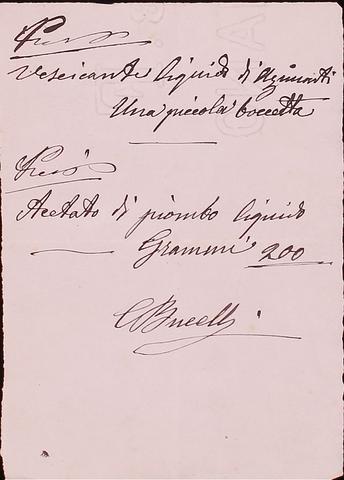 Vescicante liquido di Azimonti
Una piccola boccetta
Acetato di piombo liquido
Grammi 200
C Bucelli